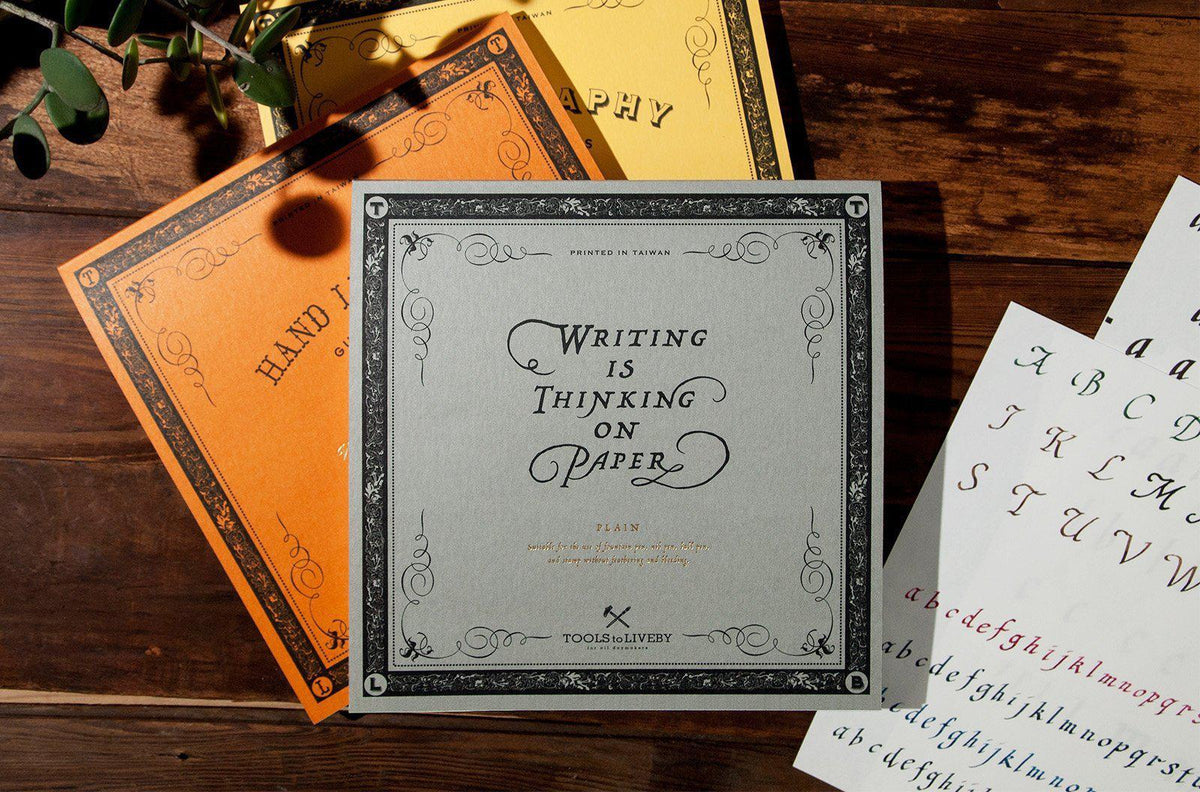 PRINTED IN TAIWAN
APHY
S
T
T
PRINTED IN TAIWAN
HAND
GUI
L
T
T
PRINTED IN TAIWAN
WRITING
IS
THINKING
ON
PAPER
PLAIN
Suitable for the use of fountain pen, nib pen, ball pen,
and stamp without feathering and bleeding.
TOOLS to LIVEBY
for all daymakers
L
B
a
a a
A B C D
J K L M
S T U V W
a b c d e f g h i j k l m n o p q r s
a b c d e f g h i j k l m n o p q r s t u
c d e f g h i j k l m n o
a b c d e f g h i